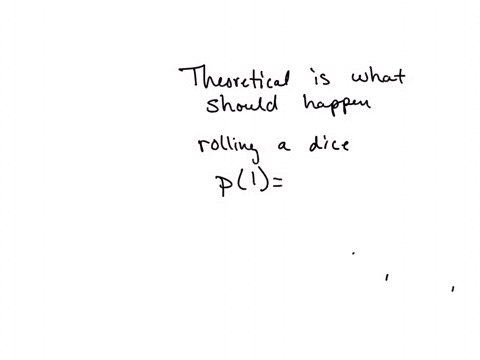 Theoretical is what
should happen
rolling a dice
P(1)=